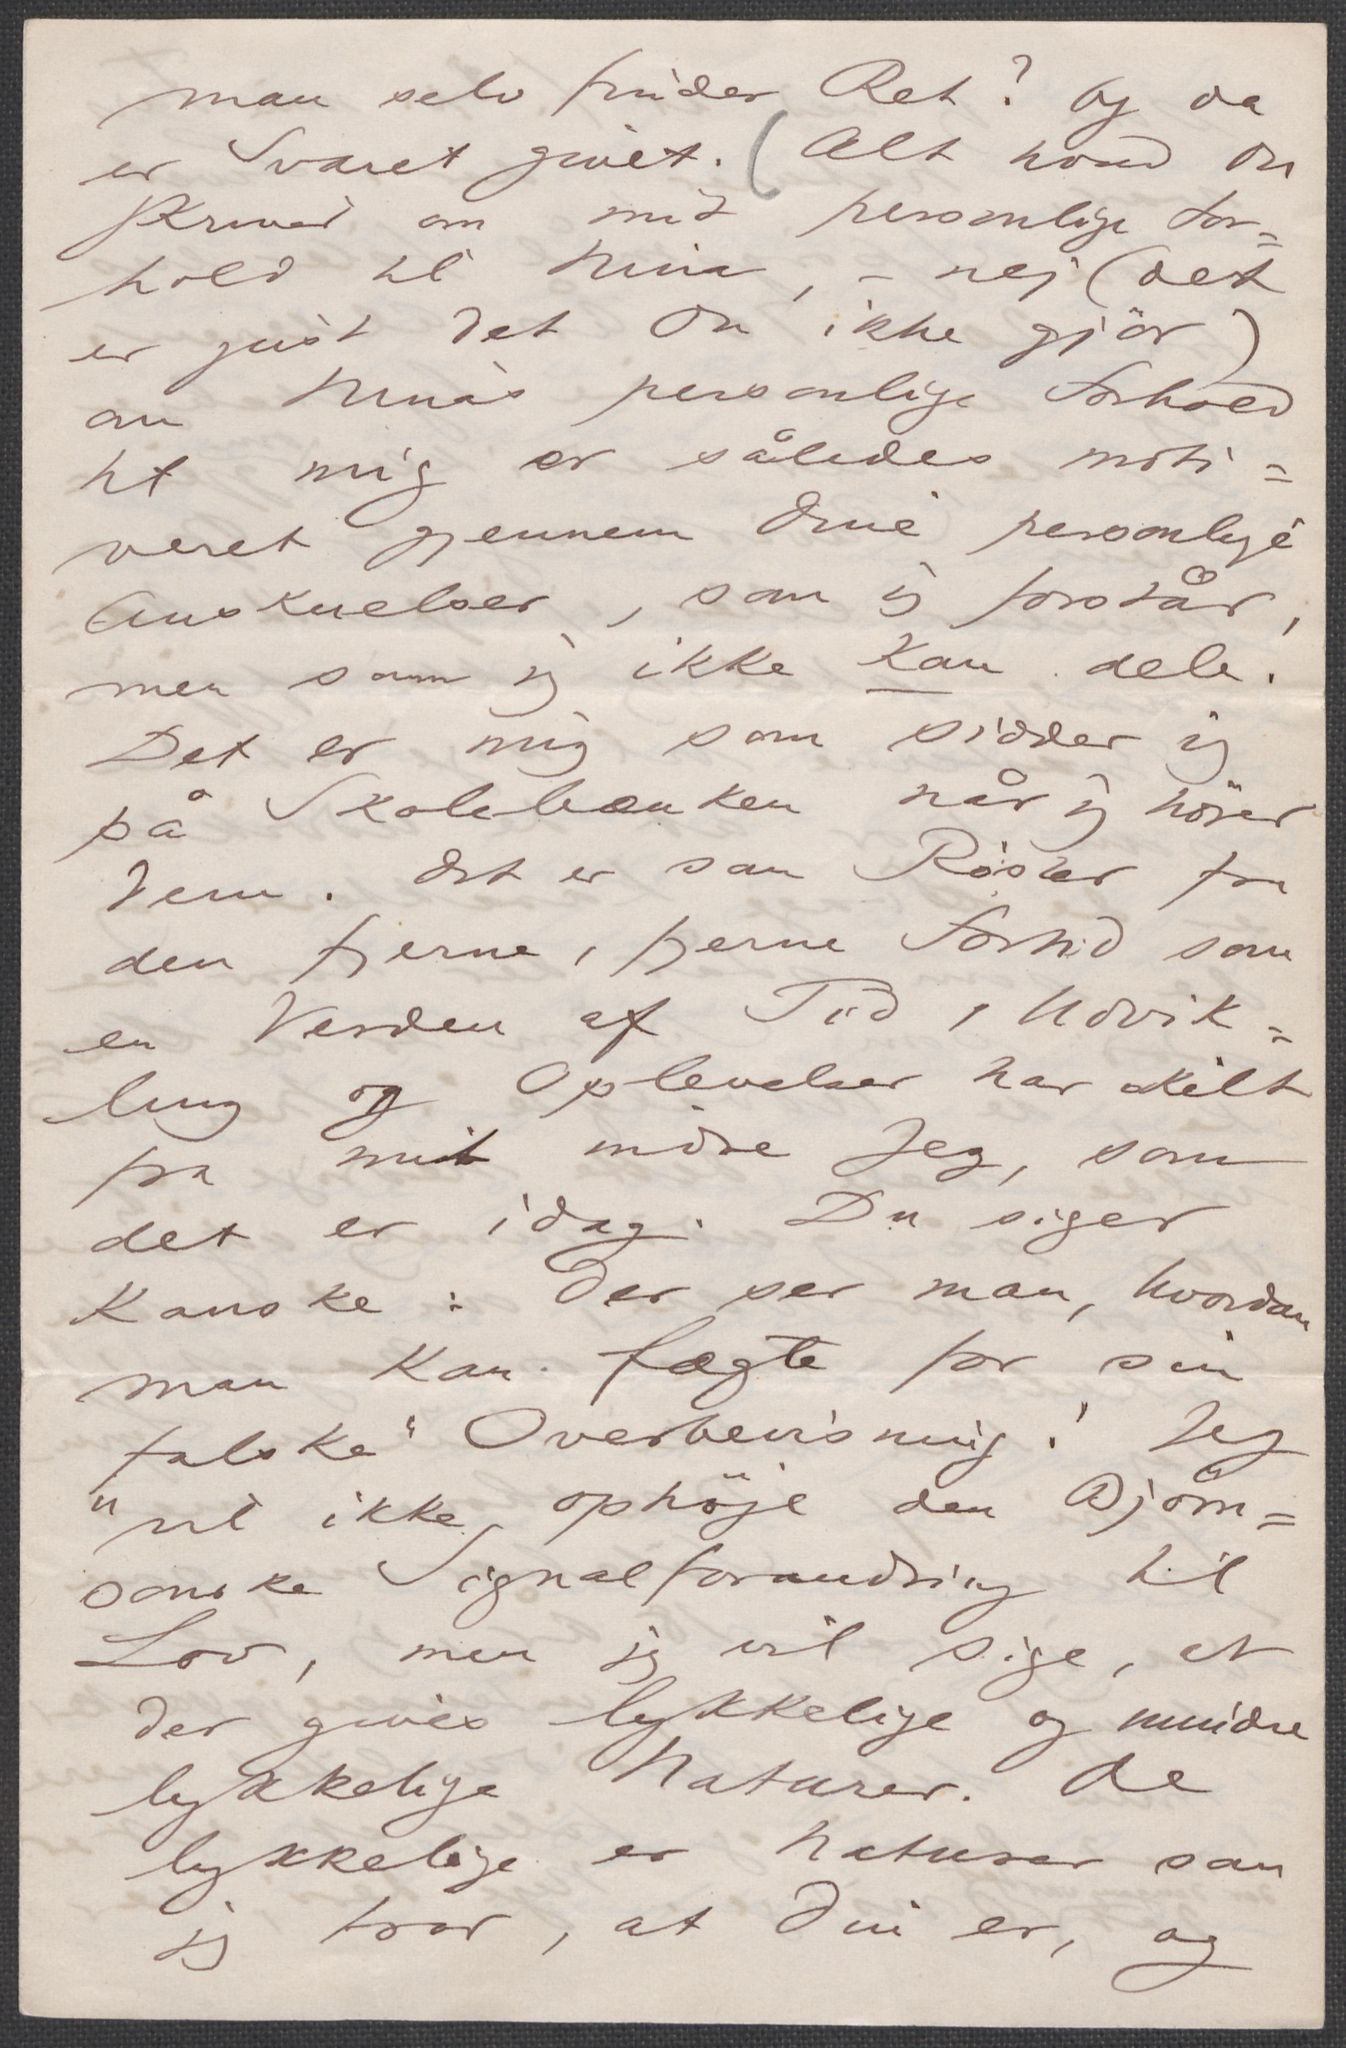 man selv finder Ret? Og da
er Svaret givet. (Alt hvad Du
skriver om mit personlige For=
hold til Nina, – nej (det
er just det Du ikke gjör)
om Ninas personlige Forhold
til mig er således moti=
veret gjennem Dine personlige
Anskuelser, som jeg forstår,
men som jeg ikke kan dele.
Det er mig som sidder jeg
på Skolebænken når jeg hörer
dem. Det er som Röster fra
den fjerne, fjerne Fortid som
en Verden af Tid, Udvik=
ling og Oplevelser har skilt
fra mit indre Jeg, som
det er idag. Du siger
kanske: Der ser man, hvordan
man kan fægte for sin
"falske" Overbevisning! Jeg
vil ikke ophöje den Björn=
sonske Signalforandring til
Lov, men jeg vil sige, at
der gives lykkelige og mindre
lykkelige Naturer. De
lykkelige er Naturer som
jeg tror, at Din er, og